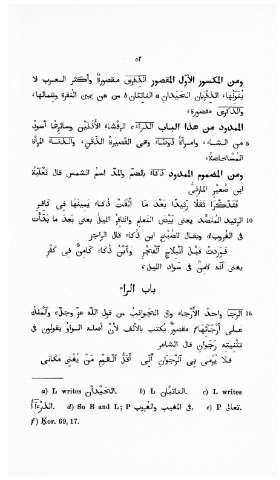 ٥٢
ومن المكسور الأوّل المقصور الذِفْرَى مقصورة وأكثر العرب لا
يُنوِّنُها، الذِفْرَيان الحَيْدان a الناتئان b من عن يمين النُقرة وشمالها،
والذِكْرَى مقصورة،
الممدود من هذا الباب الذَرْآء c الرقْشاء الأُذُنَيْن وسائرها أسودُ
من الشاء، وامرأة ذَوْطاءُ وهى القصيرة الذَقَن، المرأة
المُسْتحاضة،
ومن المضموم الممدود ذُكاءُ بالضمّ والمدّ اسم الشمس قال ثَعْلَبَةُ
ابن صُعَيْر المازنىّ
فَتَذَكَّرَا ثَقَلًا رَثِيدًا بَعْدَ مَا أَلْقَتْ ذُكاءُ يَمِينَها فى كافِرِ
10 الرثيد المُنضَّد يعنى بَيْض النعام والكافر الليل يعنى بعد ما بَدَأَت
فى الغُروب d، ويقال للصُبْح ابن ذُكاءَ قال الراجز
فَوَرَدَتْ قَبْلَ انْبِلاجِ الفَجْرِ وَابْنُ ذُكاءَ كامِنٌ فى كَفْرِ
يعنى أنّه كامن فى سَواد الليل،
باب الراء
15 الرَجا واحد الأَرْجاء وهى الجَوانب من قول الله عزّ وجلّ e وَٱلْمَلَكُ
عَلَى أَرْجَائِهَا f مقصور يُكتب بالألف لأنّ أصله الواو يقولون فى
تثنيته رَجَوانِ قال الشاعر
فَلا يُرْمَى بِىَ الرَجَوانِ إِنِّى أَقَلُّ القَوْمِ مَنْ يُغْنِى مَكانى
a) L writes الحَيْدانِ. b) L الناتئان. c) L writes
الذَرْأَآءُ. d) So B and L; P فى المغيب والغيوب. e) P تعالى.
f) Ḳor. 69, 17.